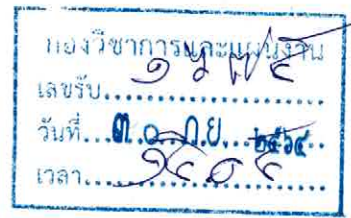 กองวิชาการและแผนงาน
เลขรับ
วันที่ ๓๐ ก.ย. ๒๕๖๔
เวลา